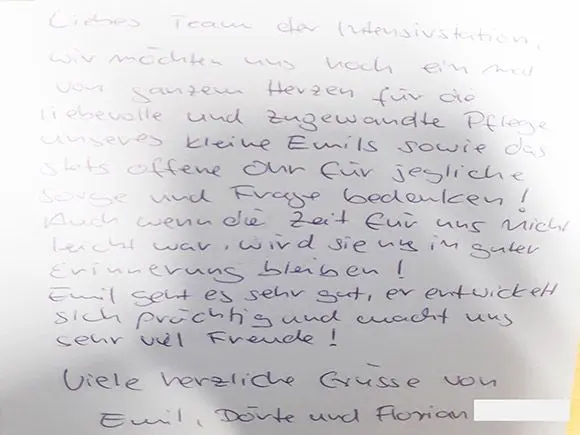 Liebes Team der Intensivstation,
wir möchten uns noch ein mal
von ganzem Herzen für die
liebevolle und zugewandte Pflege
unseres kleine Emils sowie das
stets offene Ohr für jegliche
Sorge und Frage bedenken!
Auch wenn die Zeit für uns nicht
leicht war, wird sie uns in guter
Erinnerung bleiben!
Emil geht es sehr gut, er entwickelt
sich prächtig und macht uns
sehr viel Freude!
Viele herzliche Grüsse von
Emil, Dörte und Florian